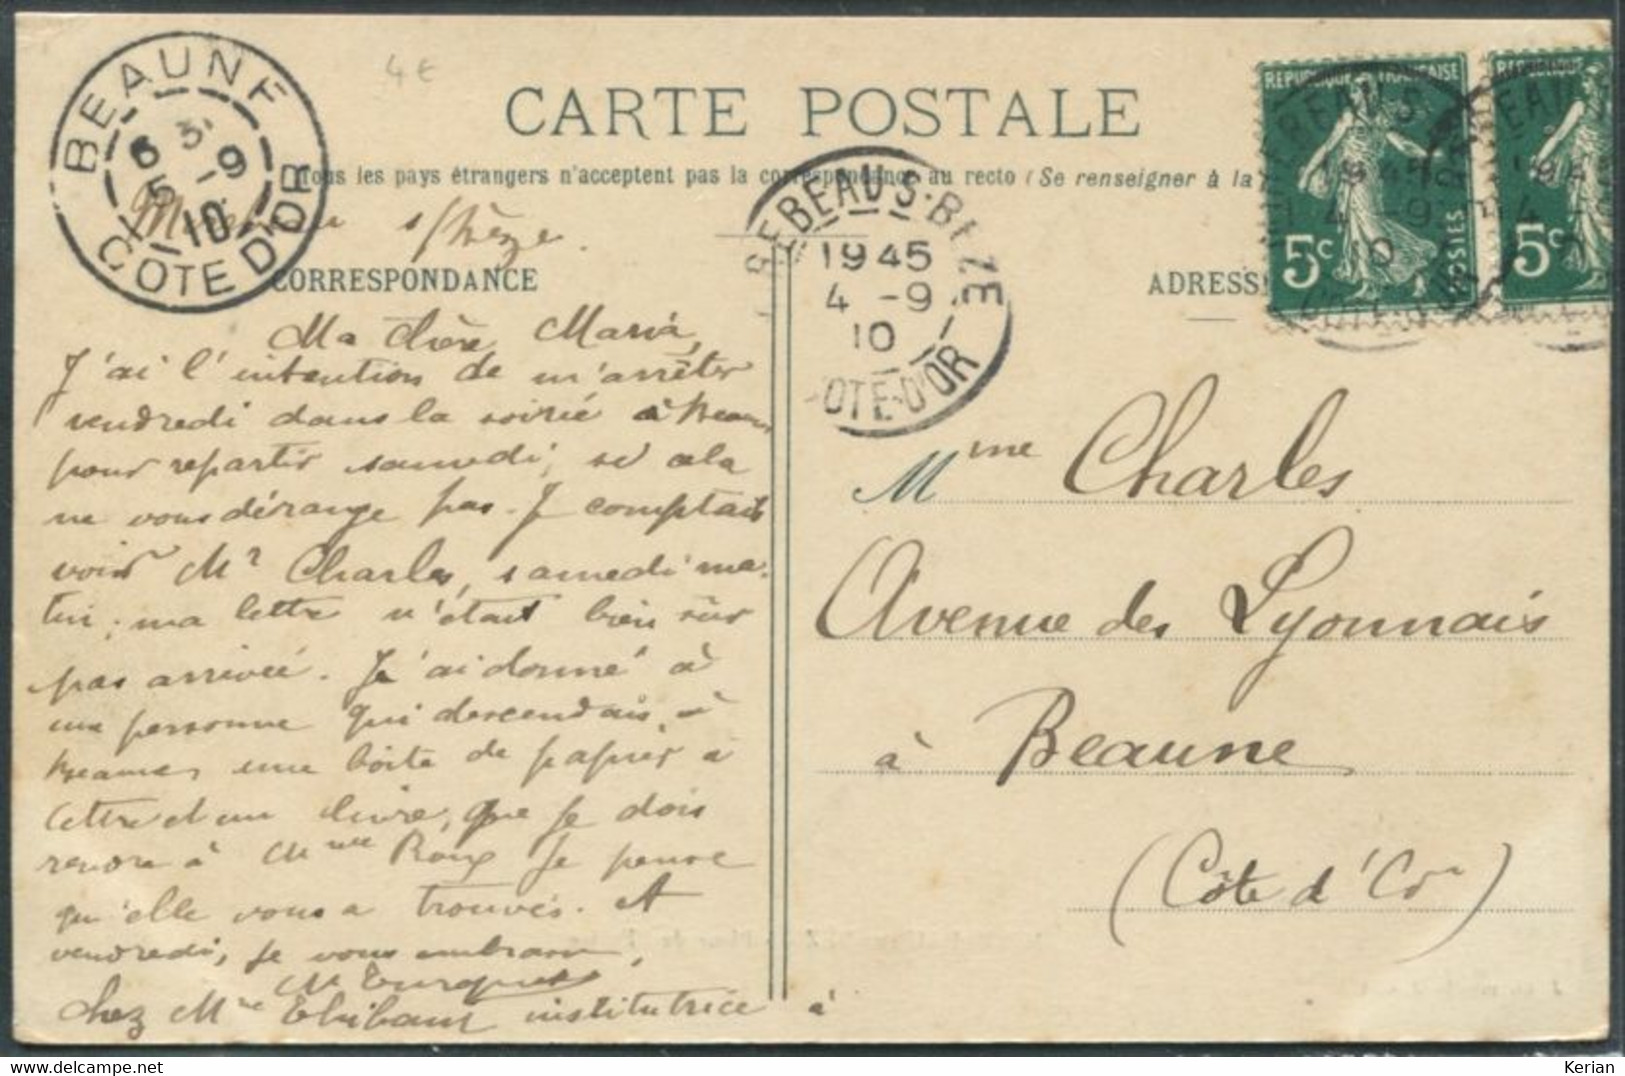 BEAUNE
6 3
5 -9
10
COTE D'OR
4 €
CARTE POSTALE
Tous les pays étrangers n'acceptent pas la correspondance au recto (Se renseigner à la
s/Bèze.
CORRESPONDANCE
BEBEAU S. BEZE
1945
4 -9
10
OTE-D'OR
ADRESS
REPUBLIQUE FRANÇAISE
5c
POSTES
REPUBLIQUE
5c
Ma chère Maria,
J'ai l'intention de m'arrêter
vendredi dans la soirée à Beaune
pour repartir samedi, si cela
ne vous dérange pas. Je comptais
voir Mr Charles, samedi ma-
tin; ma lettre n'était bien sûr
pas arrivée. J'ai donné à
une personne qui descendais à
Beaune une boîte de papier à
lettre et un livre, que je dois
rendre à Mme Roux Je pense
qu'elle vous a trouvés. A
vendredi, je vous embrasse,
chez Mme Thibaut institutrice à
Mme Charles
Avenue des Lyonnais
à Beaune
(Côte d'Or)
Kerian